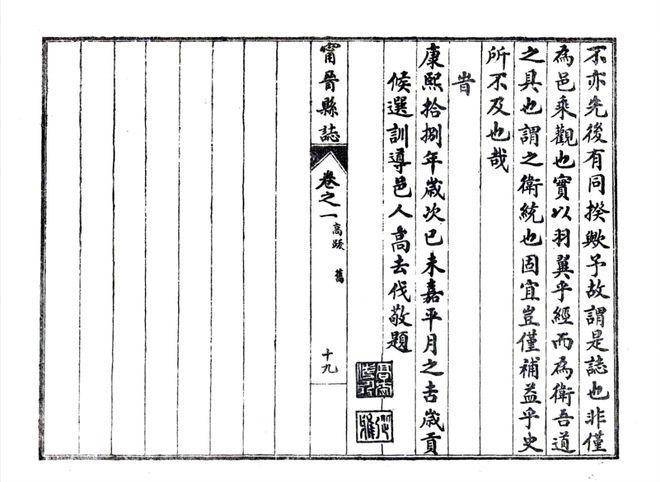 不亦先後有同揆歟予故謂是誌也非僅
為邑乘觀也實以羽翼乎經而為衛吾道
之具也謂之衛統也固宜豈僅補益乎史
所不及也哉
旹
康熙拾捌年歲次己未嘉平月之吉歲貢
候選訓導邑人高去伐敬題
甯晉縣誌
卷之一
高跋 舊
十九